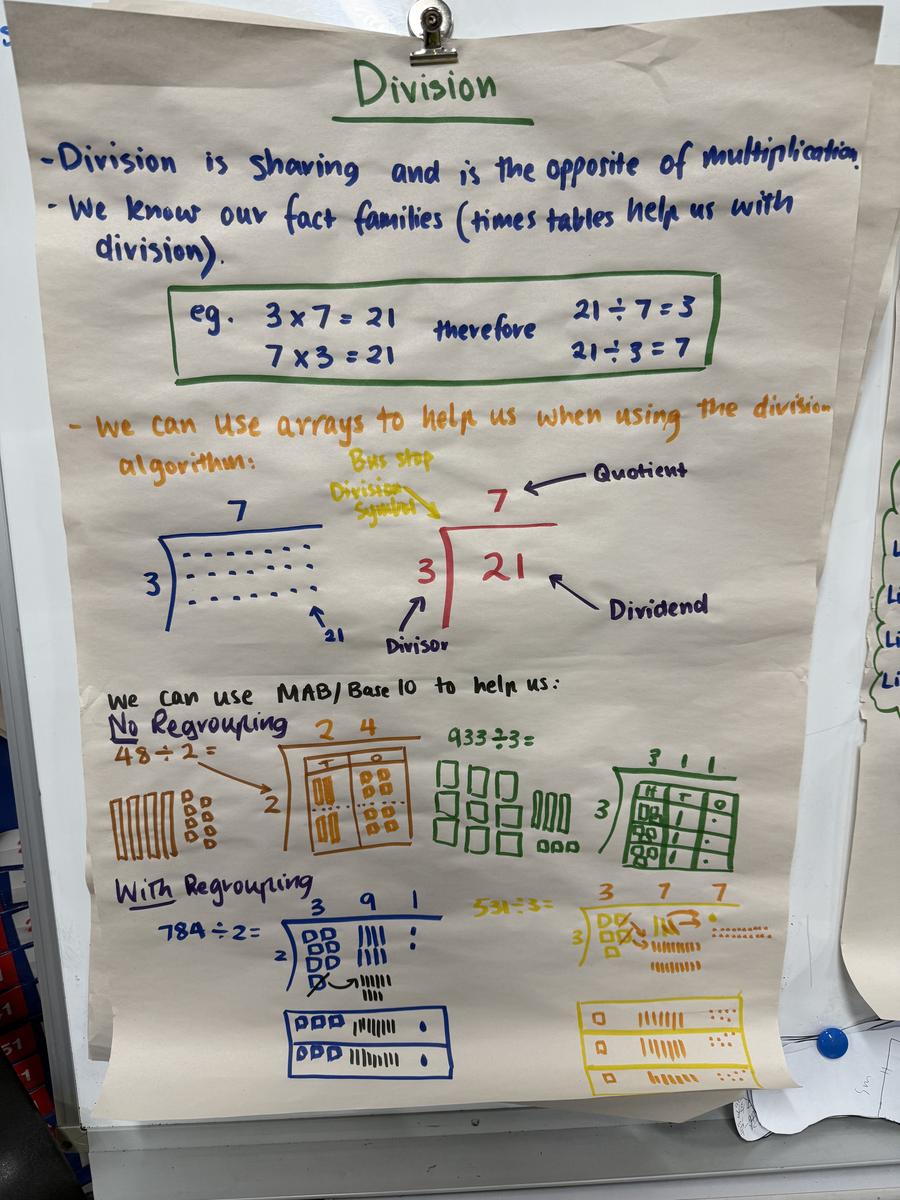 Division
- Division is sharing and is the opposite of multiplication.
- We know our fact families (times tables help us with
division).
eg. 3 x 7 = 21 therefore 21 ÷ 7 = 3
7 x 3 = 21 21 ÷ 3 = 7
- We can use arrays to help us when using the division
algorithm:
Bus stop
Division
Symbol
7
3
21
7
Quotient
3
21
Divisor
Dividend
We can use MAB/Base 10 to help us:
No Regrouping
48 ÷ 2 =
2 4
T O
2
933 ÷ 3 =
3 1 1
H T O
3
With Regrouping
784 ÷ 2 =
3 9 1
2
531 ÷ 3 =
3 7 7
3